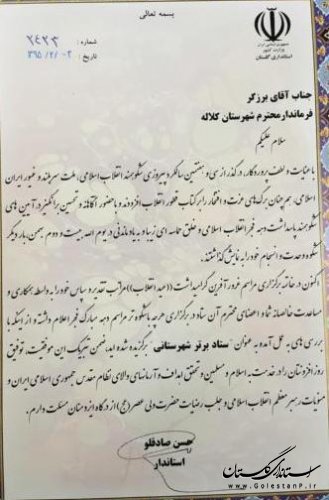 بسمه تعالی
جمهوری اسلامی ایران
وزارت کشور
استانداری گلستان
شماره : ۲۴۲۳
تاریخ : ۳۹۵/۲/۰۲
جناب آقای برزگر
فرماندار محترم شهرستان کلاله
سلام علیکم
با عنایات و لطف پروردگار، در گذر از سی و هفتمین سالگرد پیروزی شکوهمند انقلاب اسلامی، ملت سربلند و غیور ایران
اسلامی، هم چنان برگ های عزت و افتخار را بر کتاب قطور انقلاب افزودند و با حضور آگاهانه و تحسین برانگیز در آیین های
شکوهمند پاسداشت دهه فجر انقلاب اسلامی و خلق حماسه ای زیبا و به یاد ماندنی در یوم الله بیست و دوم بهمن، بار دیگر
شکوه وحدت و انسجام خود را به نمایش گذاشتند.
اکنون در خاتمه برگزاری مراسم غرور آفرین گرامیداشت ((عید انقلاب)) مراتب تقدیر و سپاس خود را به واسطه همکاری و
مساعدت خالصانه شما و اعضای محترم آن ستاد در برگزاری هرچه باشکوه تر مراسم دهه مبارک فجر اعلام داشته و از اینکه با
بررسی های به عمل آمده به عنوان "ستاد برتر شهرستانی" برگزیده شده اید، ضمن تبریک این موفقیت، توفیق
روز افزونتان را در خدمت به اسلام و مسلمین و تحقق اهداف و آرمانهای والای نظام مقدس جمهوری اسلامی ایران و
منویات رهبر معظم انقلاب اسلامی و جلب رضایت حضرت ولی عصر (عج) از درگاه ایزد منان مسئلت دارم.
حسن صادقلو
استاندار
استانداری گلستان
www.GolestanP.ir